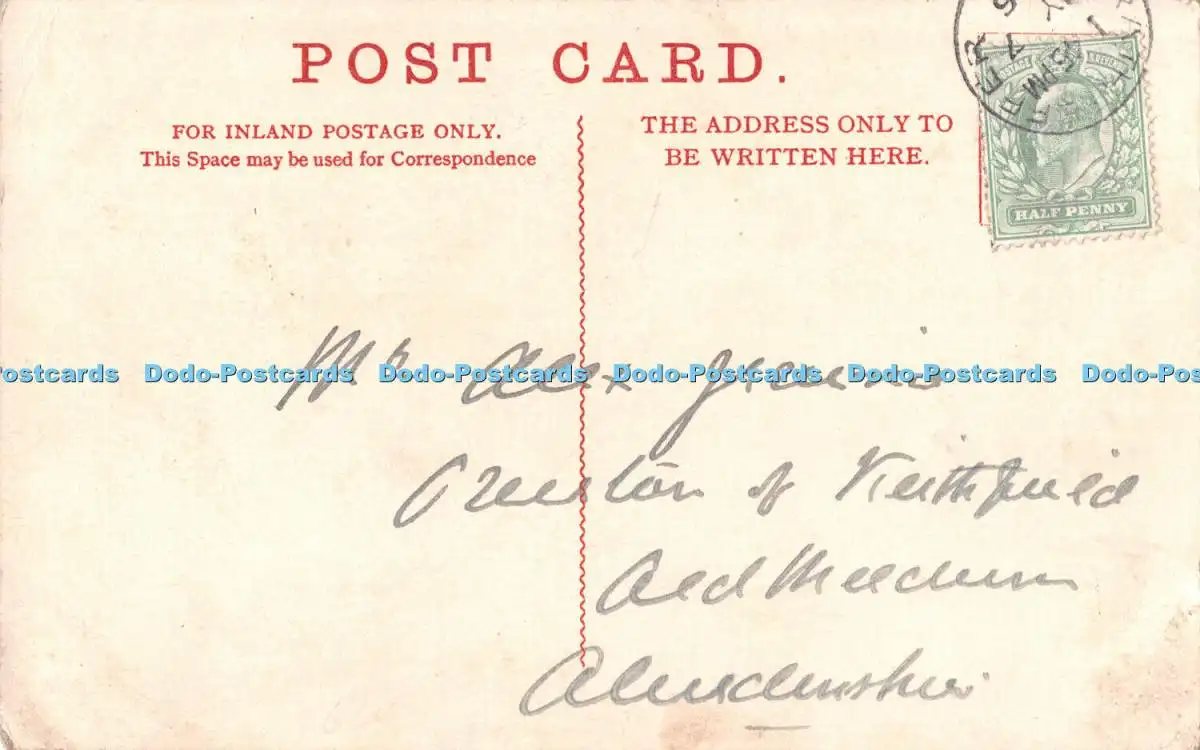 POST CARD.
FOR INLAND POSTAGE ONLY.
This Space may be used for Correspondence
THE ADDRESS ONLY TO
BE WRITTEN HERE.
POSTAGE & REVENUE
HALF PENNY
Mr Alex
of Keithfield
Old Meldrum
Aberdeenshire
ostcards Dodo-Postcards Dodo-Postcards Dodo-Postcards Dodo-Postcards Dodo-Pos